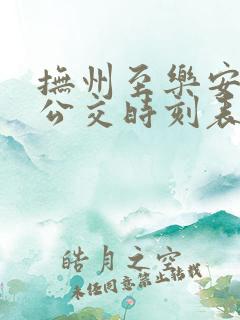 撫州至樂安
公交時刻表
皓月之空
未经同意禁止转载